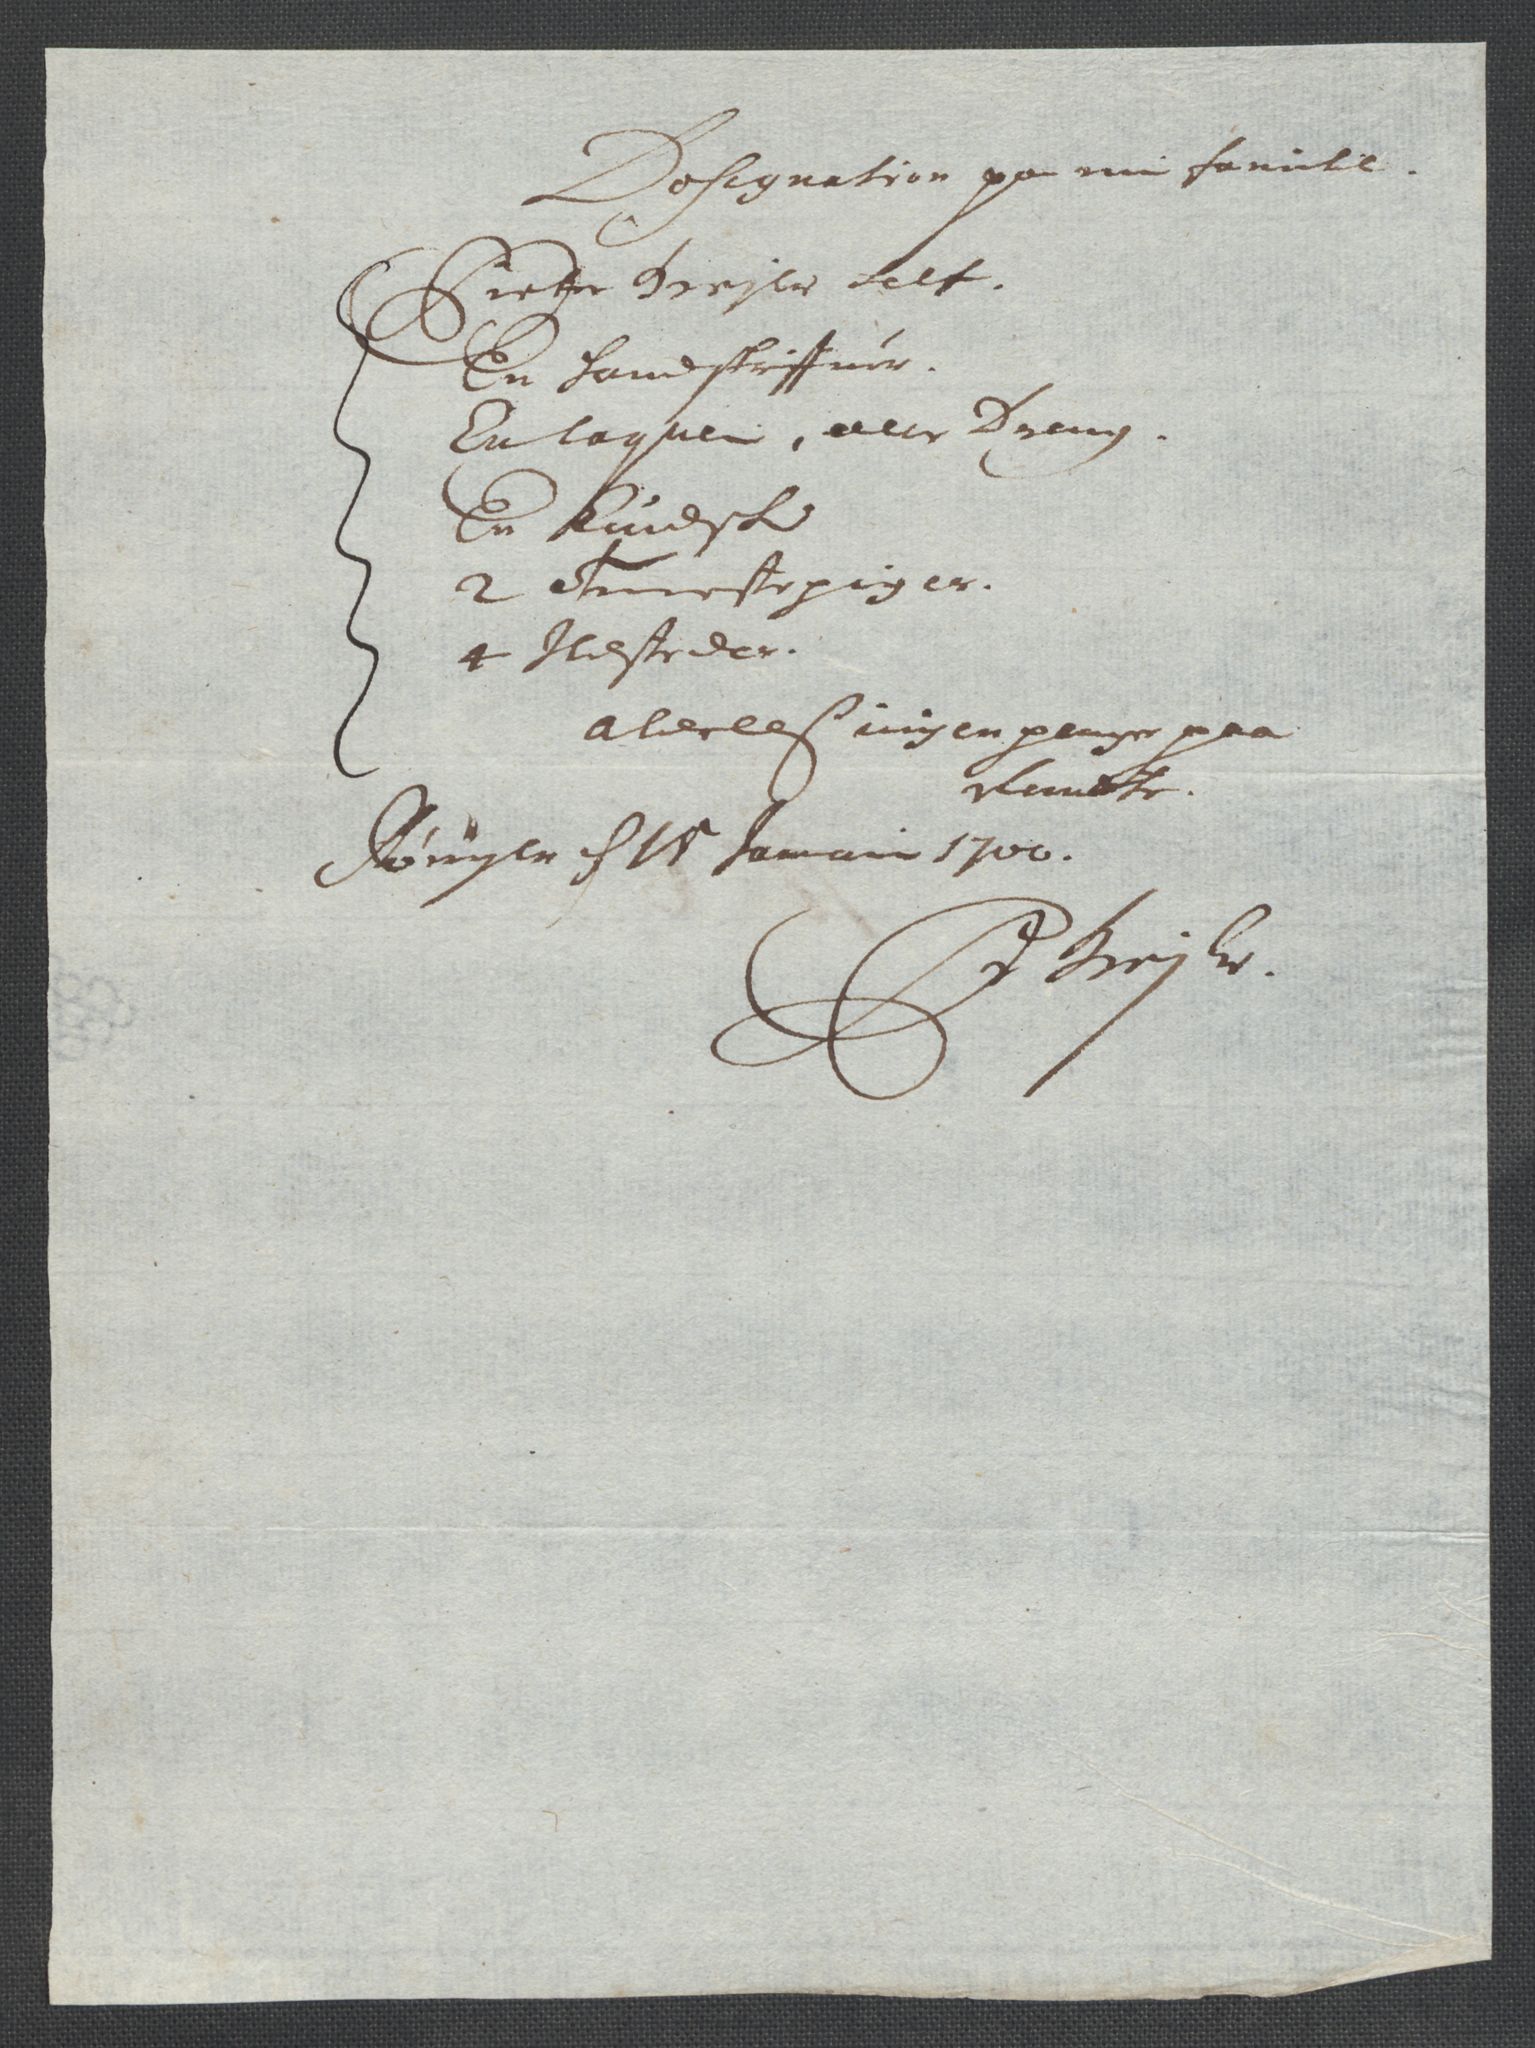 Desegnation pa min familie.
Pietter Dreyer self.
En handskriffuer.
En laquei, eller Dreng.
En Kudsk
2 thienestepiger.
4 Ildsteder.
aldeeles ingen penge paa
Rente.
d 15 Januari 1700.
P Dreyer.